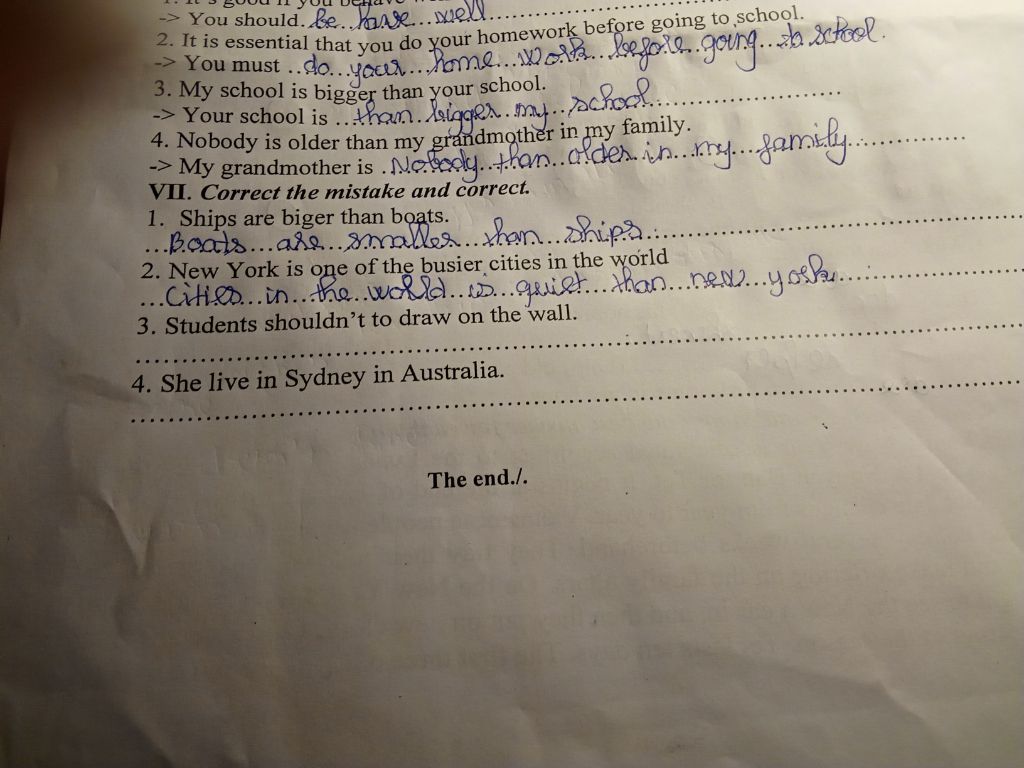 1. It's good if you behave
-> You should. be have well
2. It is essential that you do your homework before going to school.
-> You must ..do...your...home...work...before..going...to school.
3. My school is bigger than your school.
-> Your school is ...than..bigger..my...school................................
4. Nobody is older than my grandmother in my family.
-> My grandmother is .Nobody..than...older..in...my...family...................
VII. Correct the mistake and correct.
1. Ships are biger than boats.
...Boats...are...smaller...than...ships.................................
2. New York is one of the busier cities in the world
...Cities...in...the...world...is...quiet...than...new...york.................
3. Students shouldn't to draw on the wall.
................................................................
4. She live in Sydney in Australia.
................................................................
The end./.